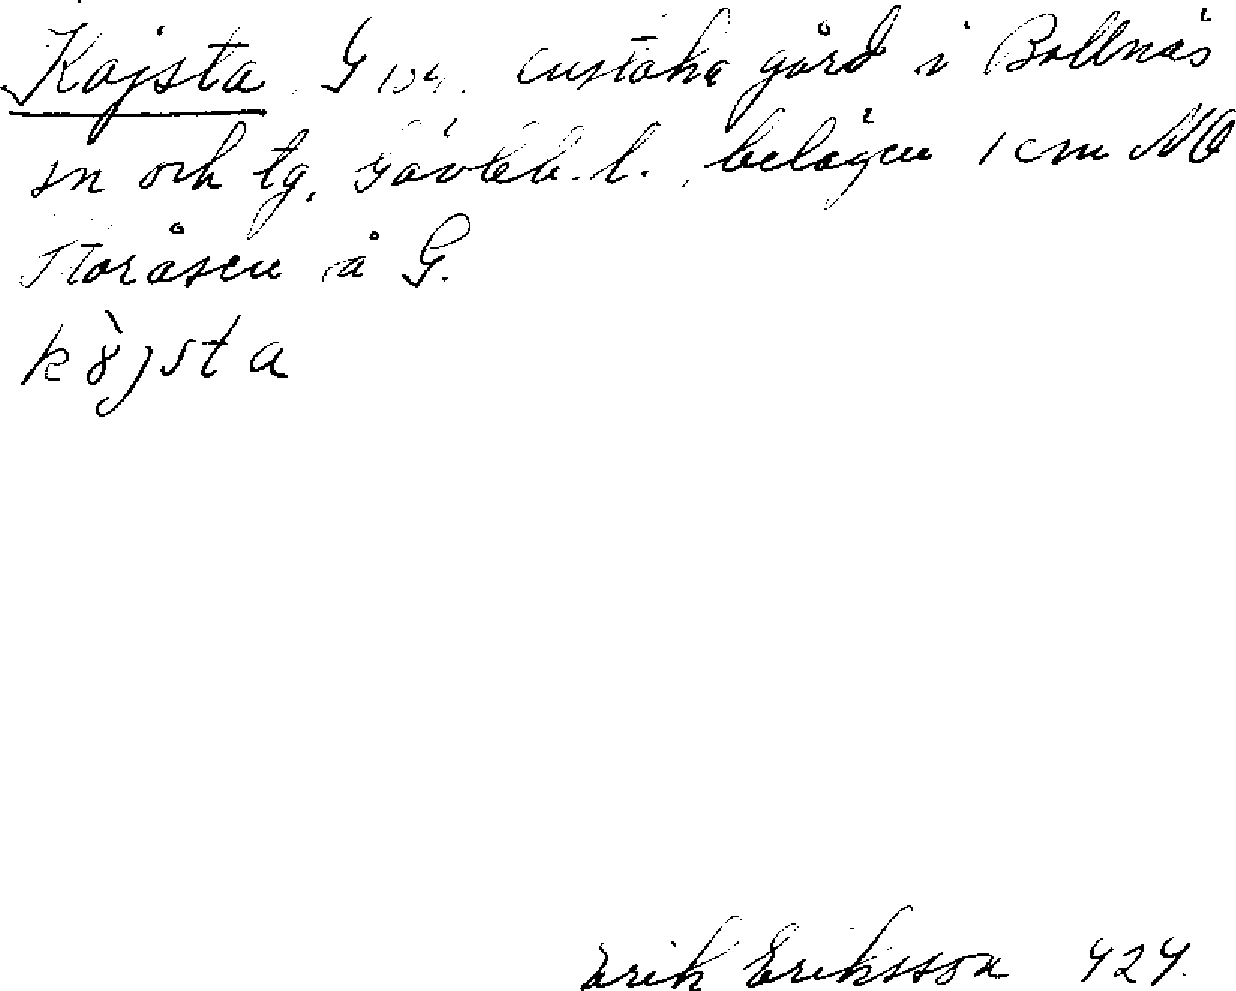 Kojsta G 104. enstaka gård i Bollnäs
sn och tg, Gävleb. l., belägen 1 cm NO
Storåsen å G.
kòjsta
Erik Eriksson 424.